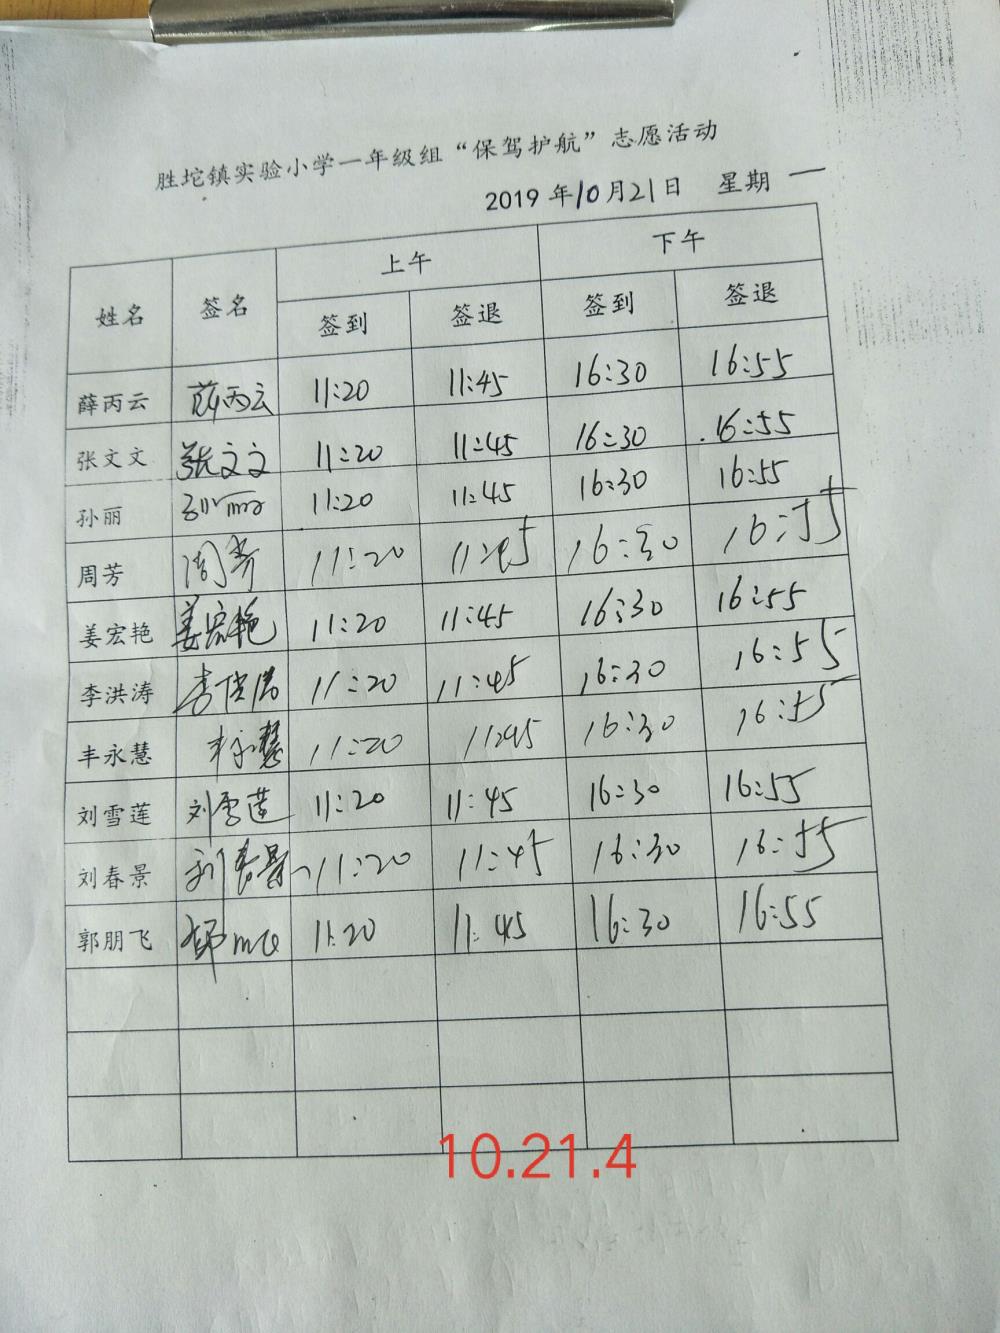 胜坨镇实验小学一年级组“保驾护航”志愿活动
2019年10月21日 星期一
姓名 签名 上午 下午
签到 签退 签到 签退
薛丙云 薛丙云 11:20 11:45 16:30 16:55
张文文 张文文 11:20 11:45 16:30 16:55
孙丽 孙丽 11:20 11:45 16:30 16:55
周芳 周芳 11:20 11:45 16:30 16:55
姜宏艳 姜宏艳 11:20 11:45 16:30 16:55
李洪涛 李洪涛 11:20 11:45 16:30 16:55
丰永慧 丰永慧 11:20 11:45 16:30 16:55
刘雪莲 刘雪莲 11:20 11:45 16:30 16:55
刘春景 刘春景 11:20 11:45 16:30 16:55
郭朋飞 郭朋飞 11:20 11:45 16:30 16:55
10.21.4